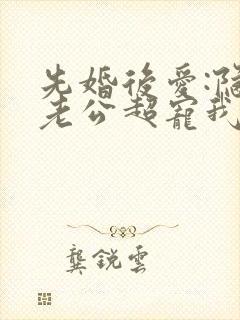 先婚後愛:
老公超寵我
龔銳雲